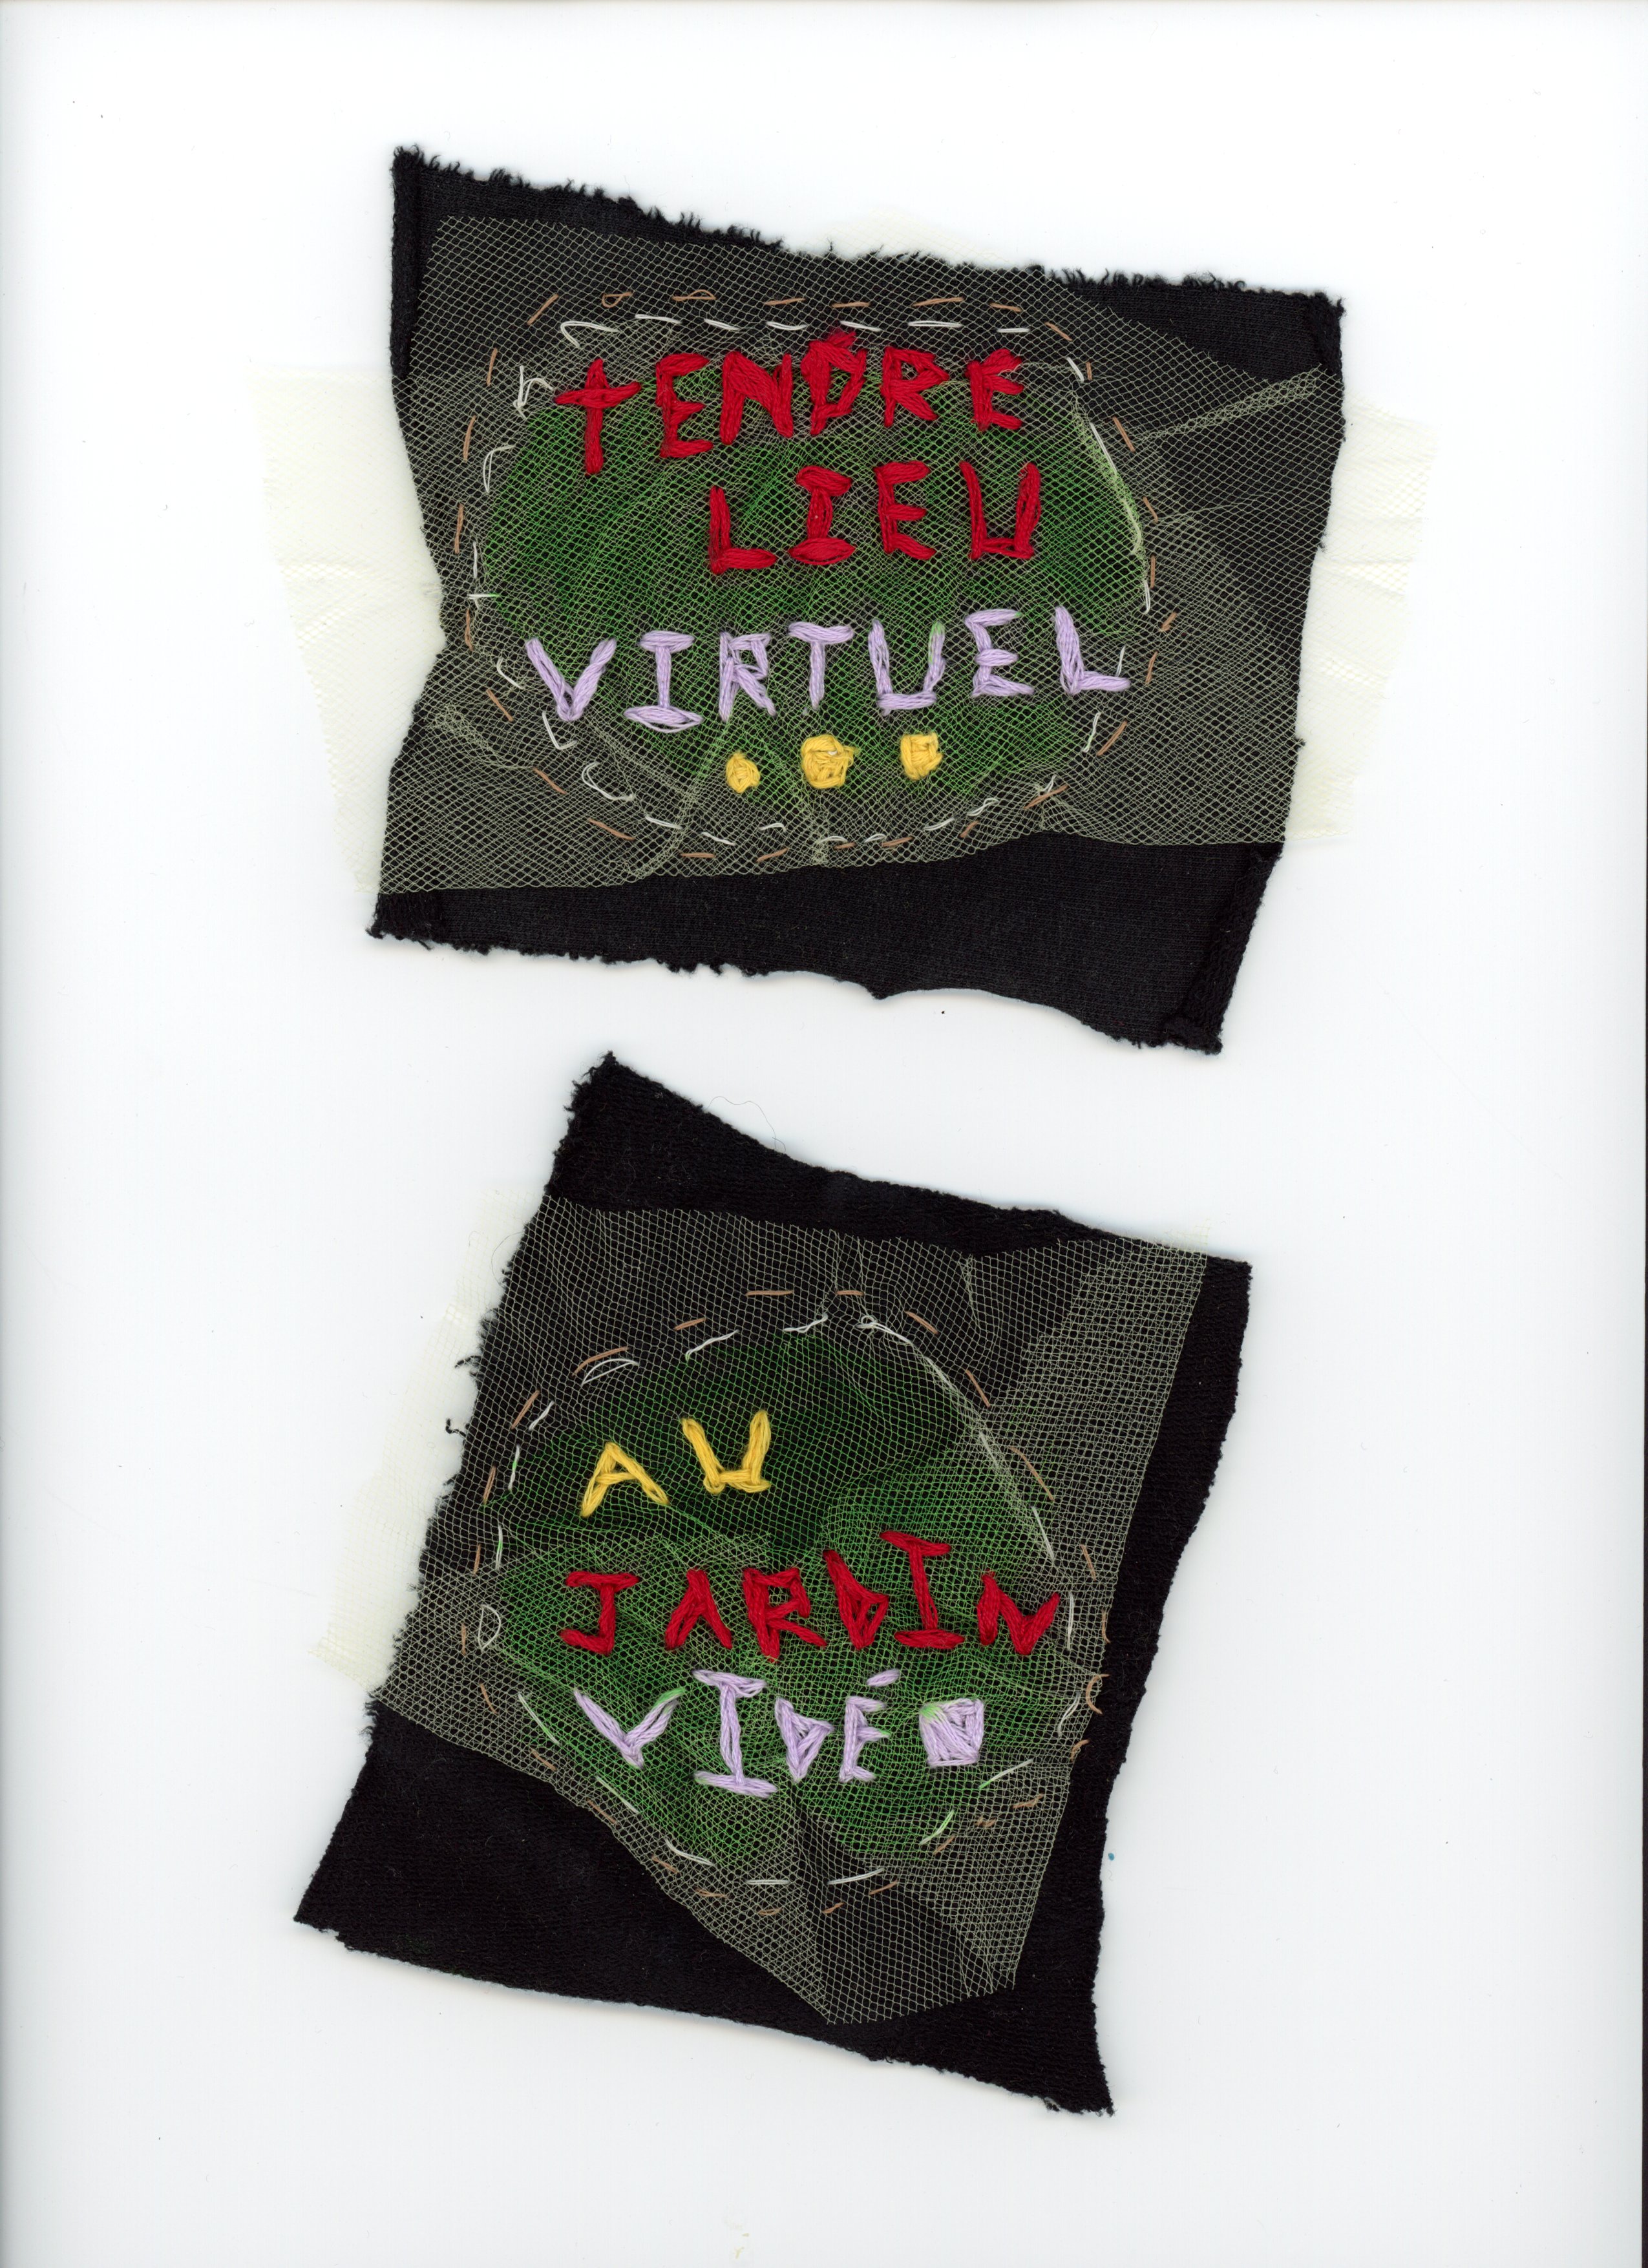 TENDRE
LIEU
VIRTUEL
...
AU
JARDIN
VIDÉO